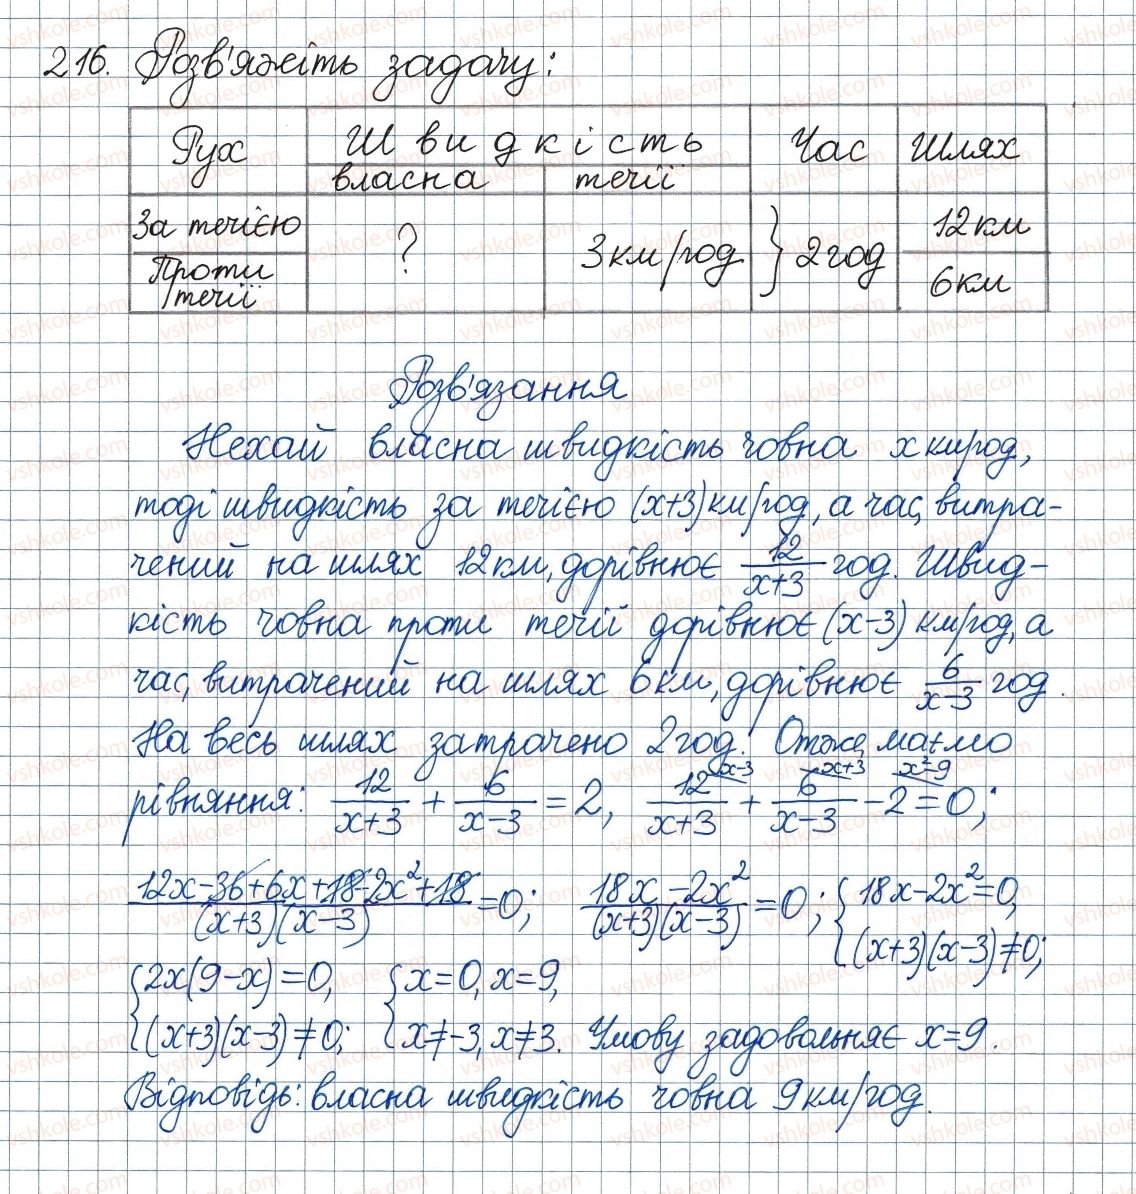 216. Розв'яжіть задачу:
Рух Швидкість Час Шлях
власна течії
За течією ? 3км/год } 2год 12км
Проти течії 6км
Розв'язання
Нехай власна швидкість човна x км/год,
тоді швидкість за течією (x+3)км/год, а час, витра-
чений на шлях 12км, дорівнює 12/(x+3) год. Швид-
кість човна проти течії дорівнює (x-3) км/год, а
час, витрачений на шлях 6км, дорівнює 6/(x-3) год.
На весь шлях затрачено 2год. Отже, маємо
рівняння: 12/(x+3) + 6/(x-3) = 2, 12/(x+3) (x-3 + 6/(x-3) (x+3 - 2 (x²-9 = 0;
(12x-36+6x+18-2x²+18)/((x+3)(x-3)) = 0; (18x-2x²)/((x+3)(x-3)) = 0; { 18x-2x²=0,
(x+3)(x-3)≠0;
{ 2x(9-x)=0, { x=0, x=9,
(x+3)(x-3)≠0; x≠-3, x≠3. Умову задовольняє x=9.
Відповідь: власна швидкість човна 9км/год.
vshkole.com